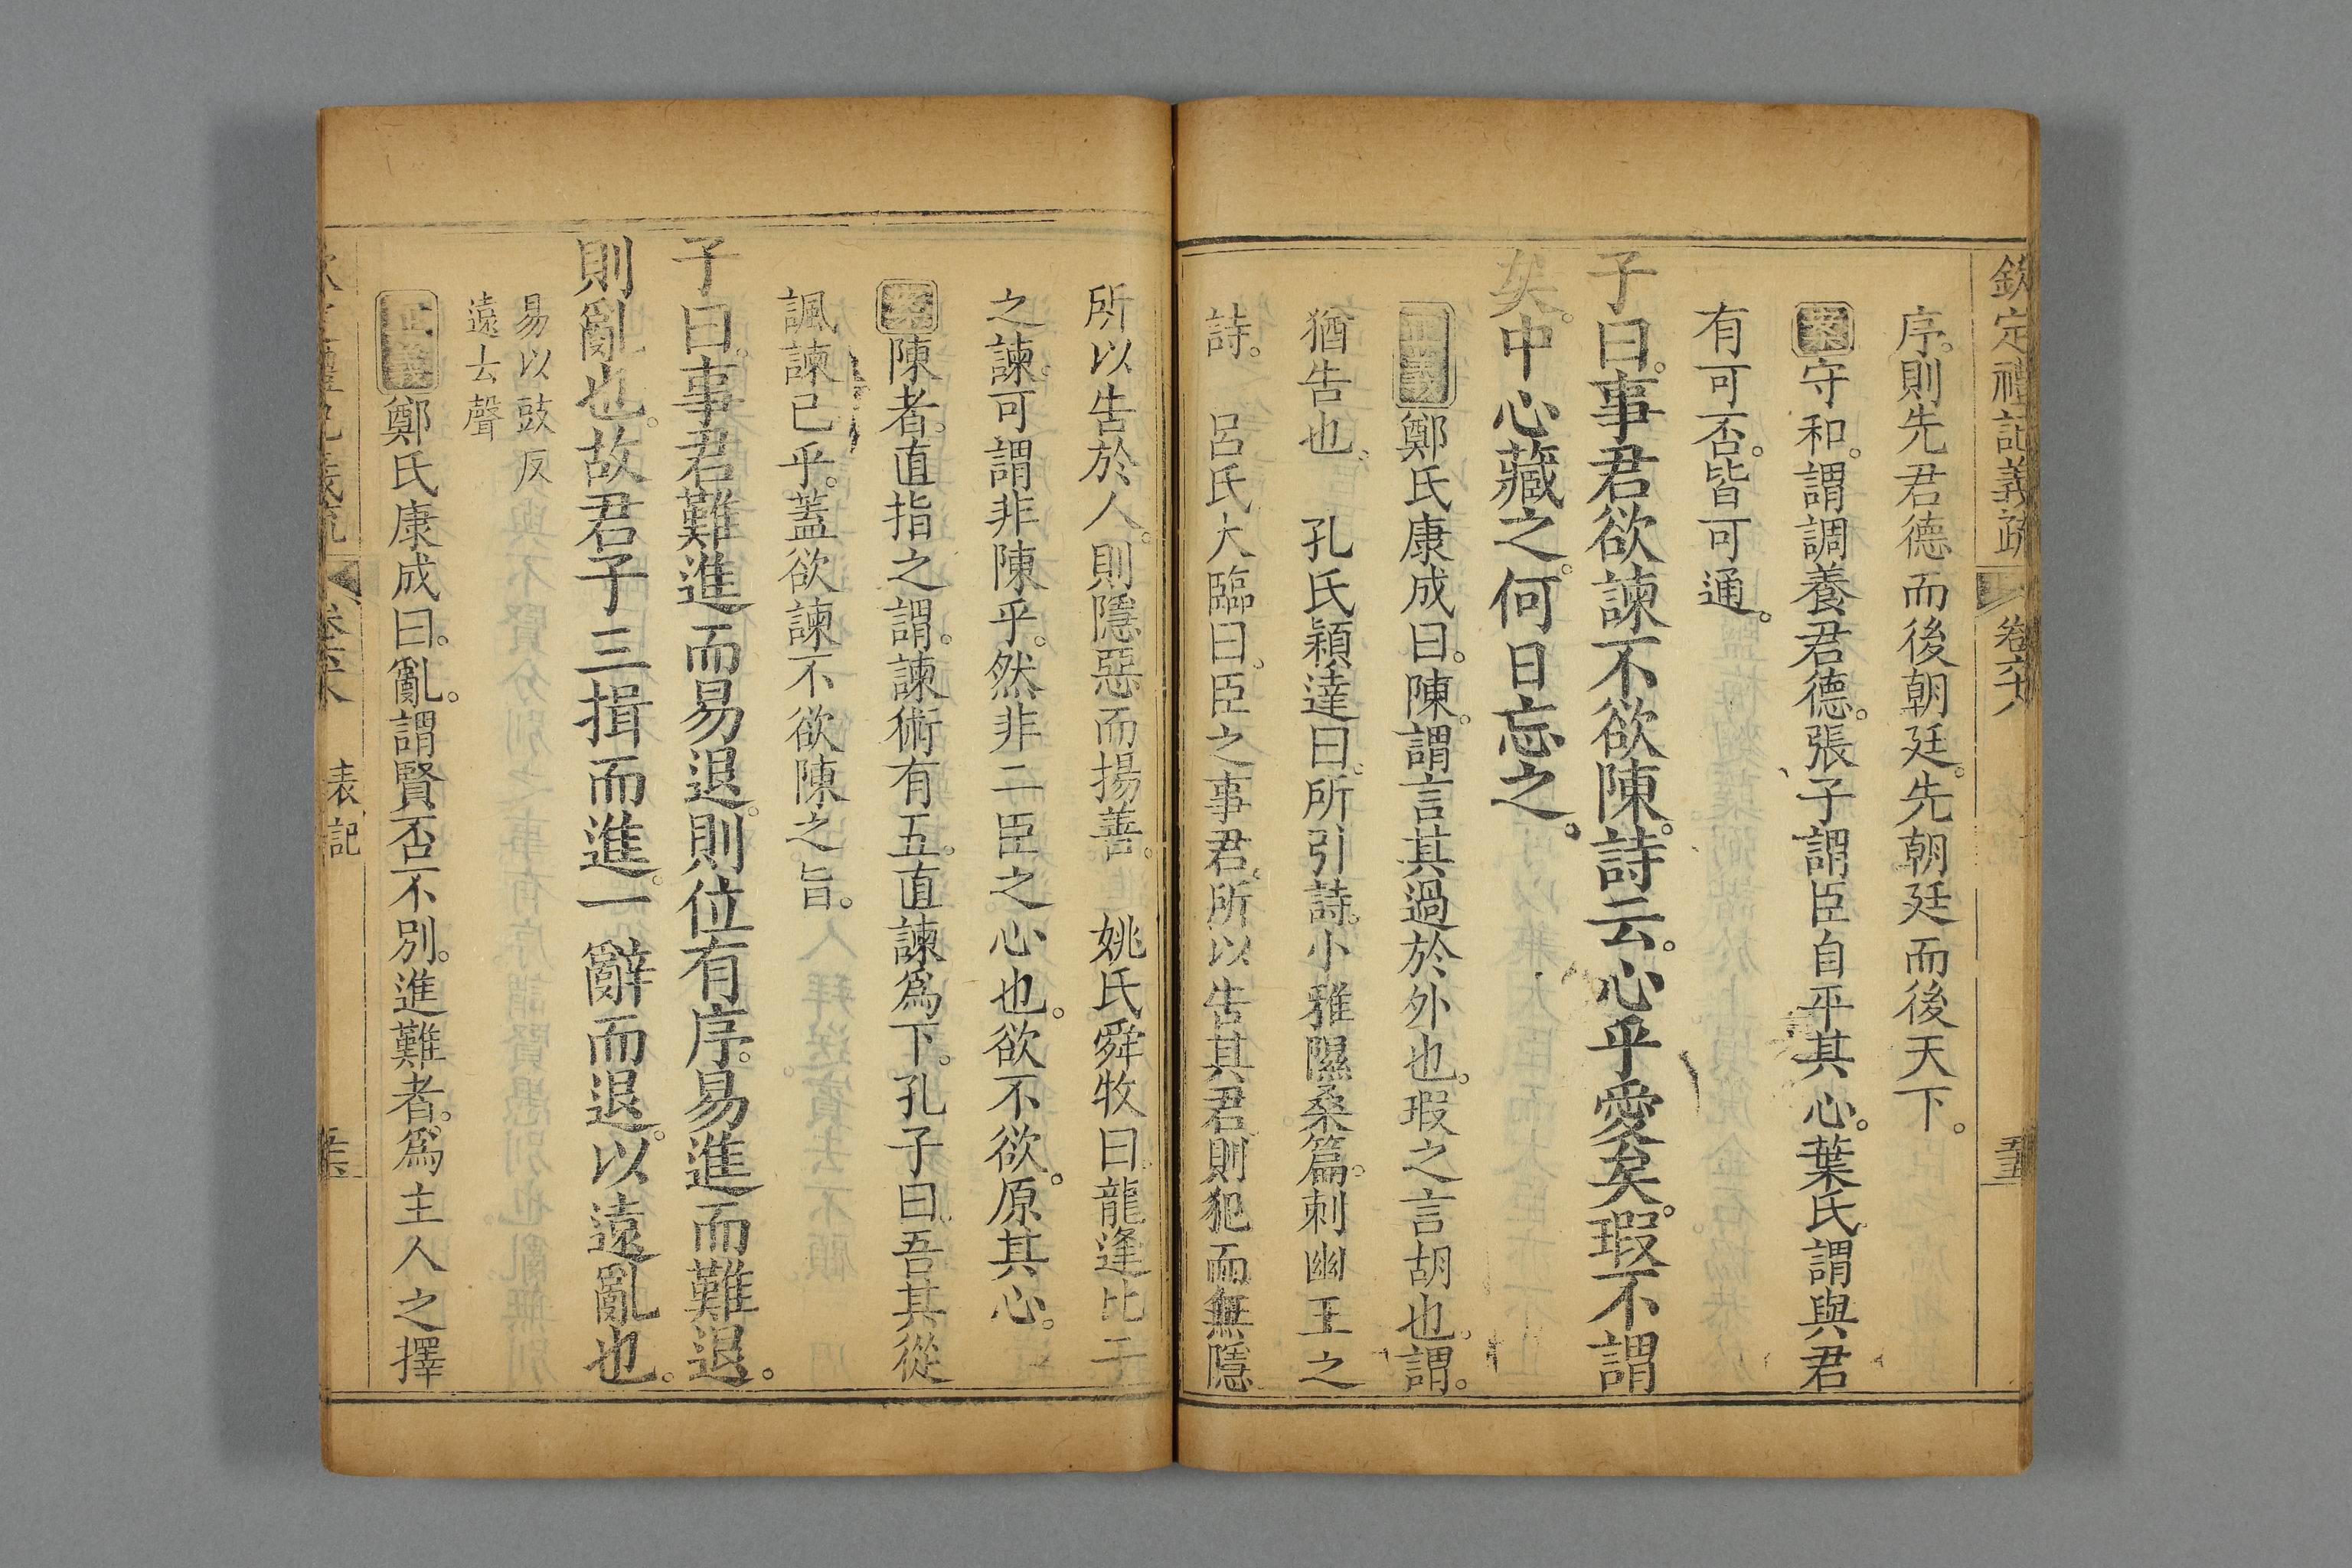 欽定禮記義疏 卷六十八 五十五
序則先君德而後朝廷。先朝廷而後天下。
案守和。謂調養君德。張子謂臣自平其心。葉氏謂與君
有可否。皆可通。
子曰。事君欲諫不欲陳。詩云。心乎愛矣。瑕不謂
矣。中心藏之。何日忘之。
正義鄭氏康成曰。陳。謂言其過於外也。瑕之言胡也。謂。
猶告也。 孔氏穎達曰。所引詩。小雅隰桑篇。刺幽王之
詩。 呂氏大臨曰。臣之事君。所以告其君則犯而無隱
所以告於人。則隱惡而揚善。 姚氏舜牧曰。龍逢比干
之諫。可謂非陳乎。然非二臣之心也。欲不欲。原其心。
案陳者。直指之謂。諫術有五。直諫爲下。孔子曰。吾其從
諷諫已乎。蓋欲諫不欲陳之旨。
子曰。事君難進而易退。則位有序。易進而難退。
則亂也。故君子三揖而進。一辭而退。以遠亂也。
易以豉反
遠去聲
正義鄭氏康成曰。亂。謂賢否不別。進難者。爲主人之擇
表記